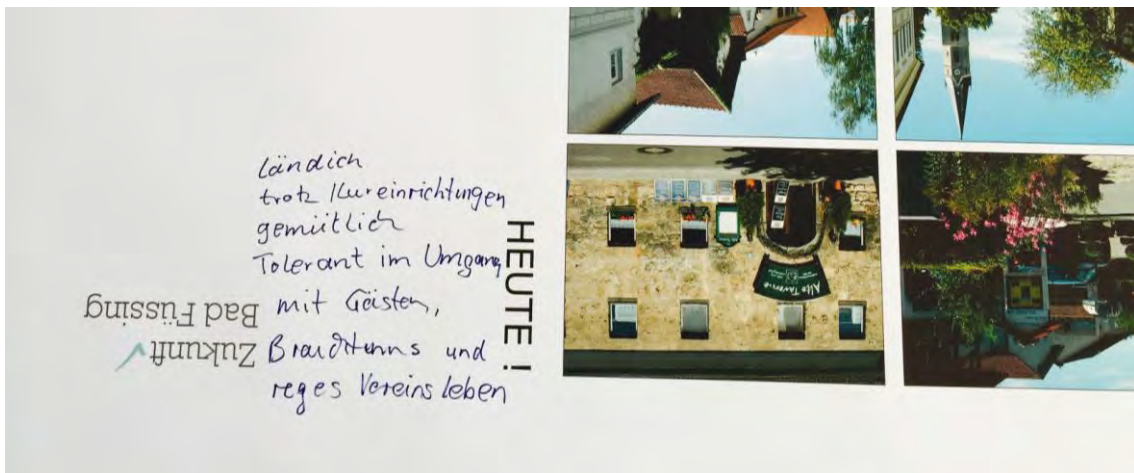 ländich
trotz Kureinrichtungen
gemütlich
Tolerant im Umgang
mit Gästen,
Brauchtums und
reges Vereinsleben
HEUTE !
Zukunft
Bad Füssing
Alte Taverne